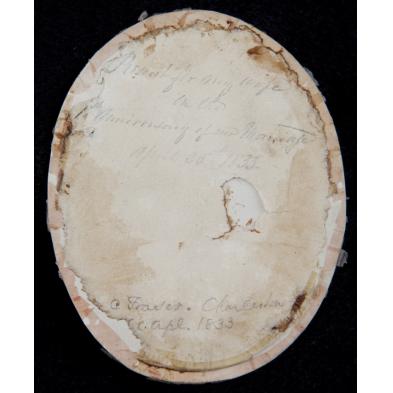 for my wife
on the
Anniversary of our Marriage
April 30 1833
C Fraser. Charleston
Apl. 1833